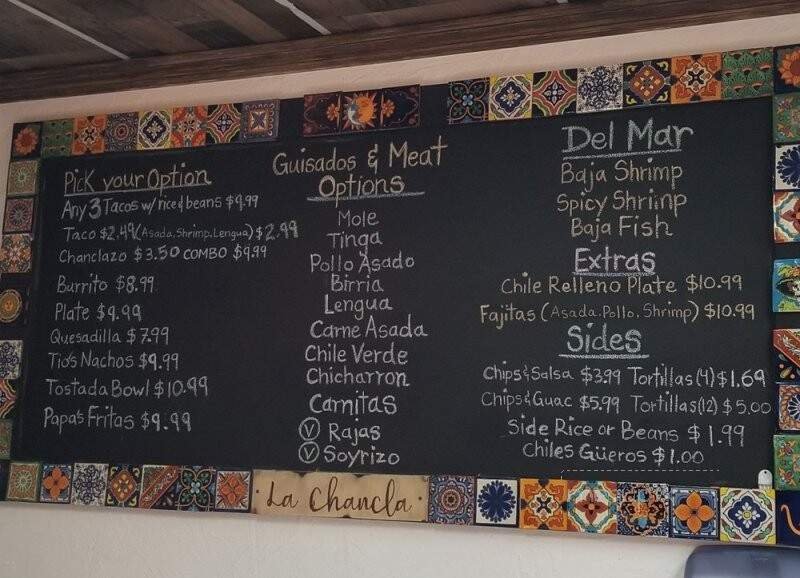 Pick your Option
Any 3 Tacos w/ rice & beans $9.99
Taco $2.49 (Asada, Shrimp, Lengua) $2.99
Chanclazo $3.50 COMBO $9.99
Burrito $8.99
Plate $9.99
Quesadilla $7.99
Tio's Nachos $9.99
Tostada Bowl $10.99
Papas Fritas $9.99
Guisados & Meat
Options
Mole
Tinga
Pollo Asado
Birria
Lengua
Carne Asada
Chile Verde
Chicharron
Carnitas
V Rajas
V Soyrizo
Del Mar
Baja Shrimp
Spicy Shrimp
Baja Fish
Extras
Chile Relleno Plate $10.99
Fajitas (Asada, Pollo, Shrimp) $10.99
Sides
Chips & Salsa $3.99 Tortillas (4) $1.69
Chips & Guac $5.99 Tortillas (12) $5.00
Side Rice or Beans $1.99
Chiles Güeros $1.00
La Chancla